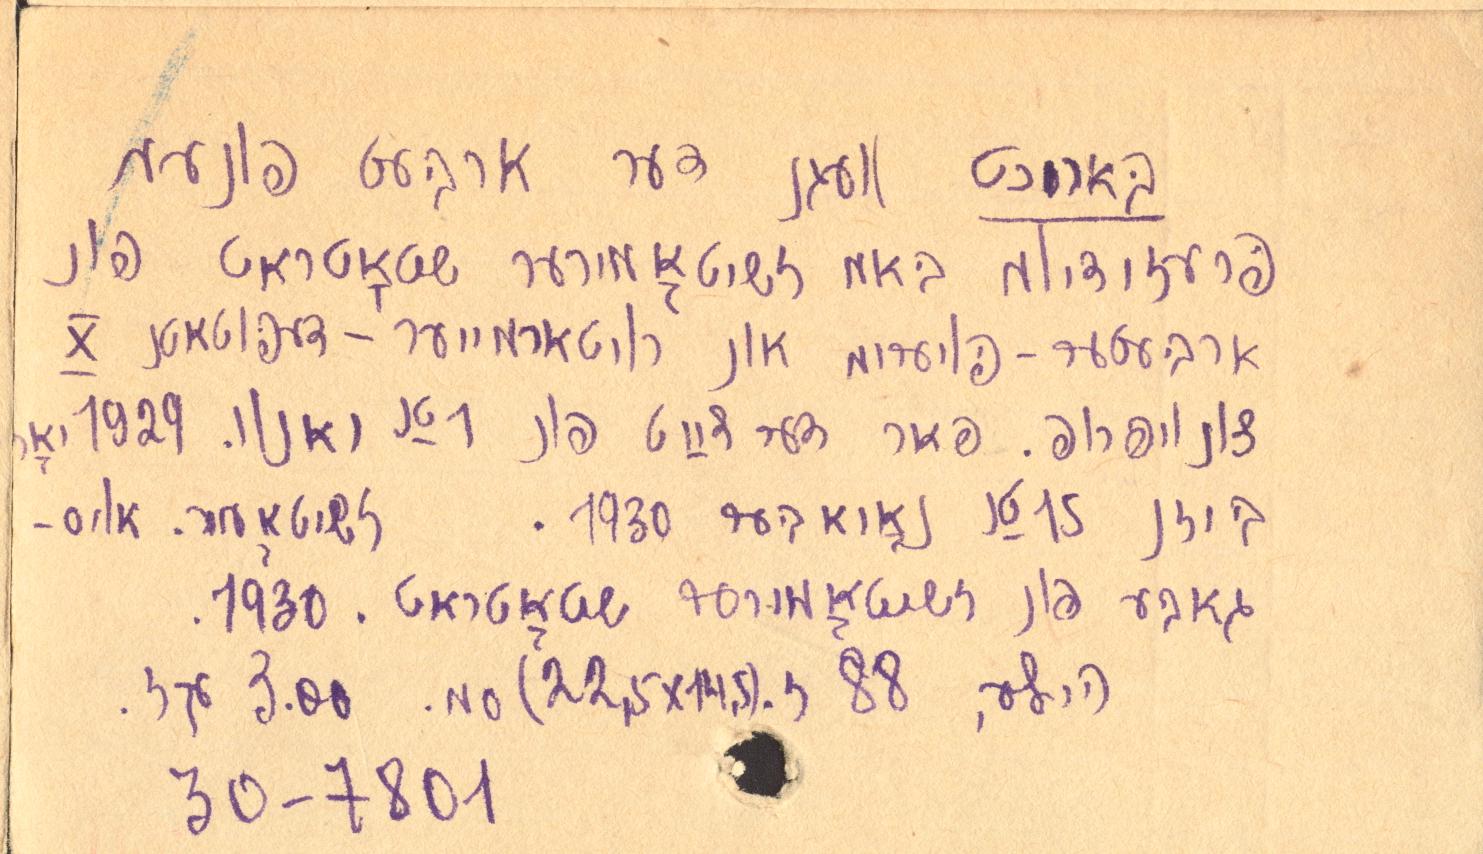 באריכט וועגן דער ארבעט פונעם
פרעזידיום באם זשיטאָמירער שטאָטראט פון
ארבעטער-פויערים און רויטארמייער-דעפוטאטן X
צונויפרוף. פאר דער צײַט פון 1טן יאנוו. 1929 יאָר
ביזן 15טן נאָיאבער 1930. זשיטאָמיר. אויס-
גאבע פון זשיטאָמירער שטאָטראט. 1930.
הילע, 88 ז. (22,5x14,5) סמ. 3.00 עקז.
30-7801